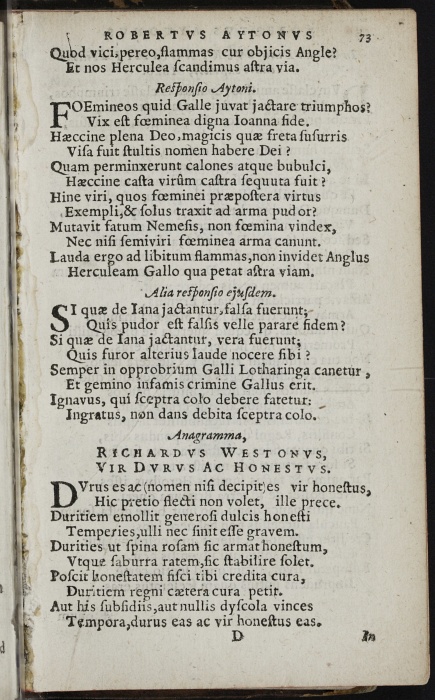 ROBERTVS AYTONVS 73
Quod vici, pereo, flammas cur objicis Angle?
Et nos Herculea scandimus astra via.
Responsio Aytoni.
FOEmineos quid Galle juvat jactare triumphos?
Vix est fœminea digna Ioanna fide.
Hæccine plena Deo, magicis quæ freta susurris
Visa fuit stultis nomen habere Dei?
Quam perminxerunt calones atque bubulci,
Hæccine casta virûm castra sequuta fuit?
Hine viri, quos fœminei præpostera virtus
Exempli, & solus traxit ad arma pudor?
Mutavit fatum Nemesis, non fœmina vindex,
Nec nisi semiviri fœminea arma canunt.
Lauda ergo ad libitum flammas, non invidet Anglus
Herculeam Gallo qua petat astra viam.
Alia responsio ejusdem.
SI quæ de Iana jactantur, falsa fuerunt;
Quis pudor est falsis velle parare fidem?
Si quæ de Iana jactantur, vera fuerunt;
Quis furor alterius laude nocere sibi?
Semper in opprobrium Galli Lotharinga canetur,
Et gemino infamis crimine Gallus erit.
Ignavus, qui sceptra colo debere fatetur:
Ingratus, non dans debita sceptra colo.
Anagramma,
RICHARDVS WESTONVS,
VIR DVRVS AC HONESTVS.
DVrus es ac (nomen nisi decipit) es vir honestus,
Hic pretio flecti non volet, ille prece.
Duritiem emollit generosi dulcis honesti
Temperies, ulli nec sinit esse gravem.
Durities ut spina rosam sic armat honestum,
Vtque saburra ratem, sic stabilire solet.
Poscit honestatem fisci tibi credita cura,
Duritiem regni cætera cura petit.
Aut his subsidiis, aut nullis dyscola vinces
Tempora, durus eas ac vir honestus eas.
D In